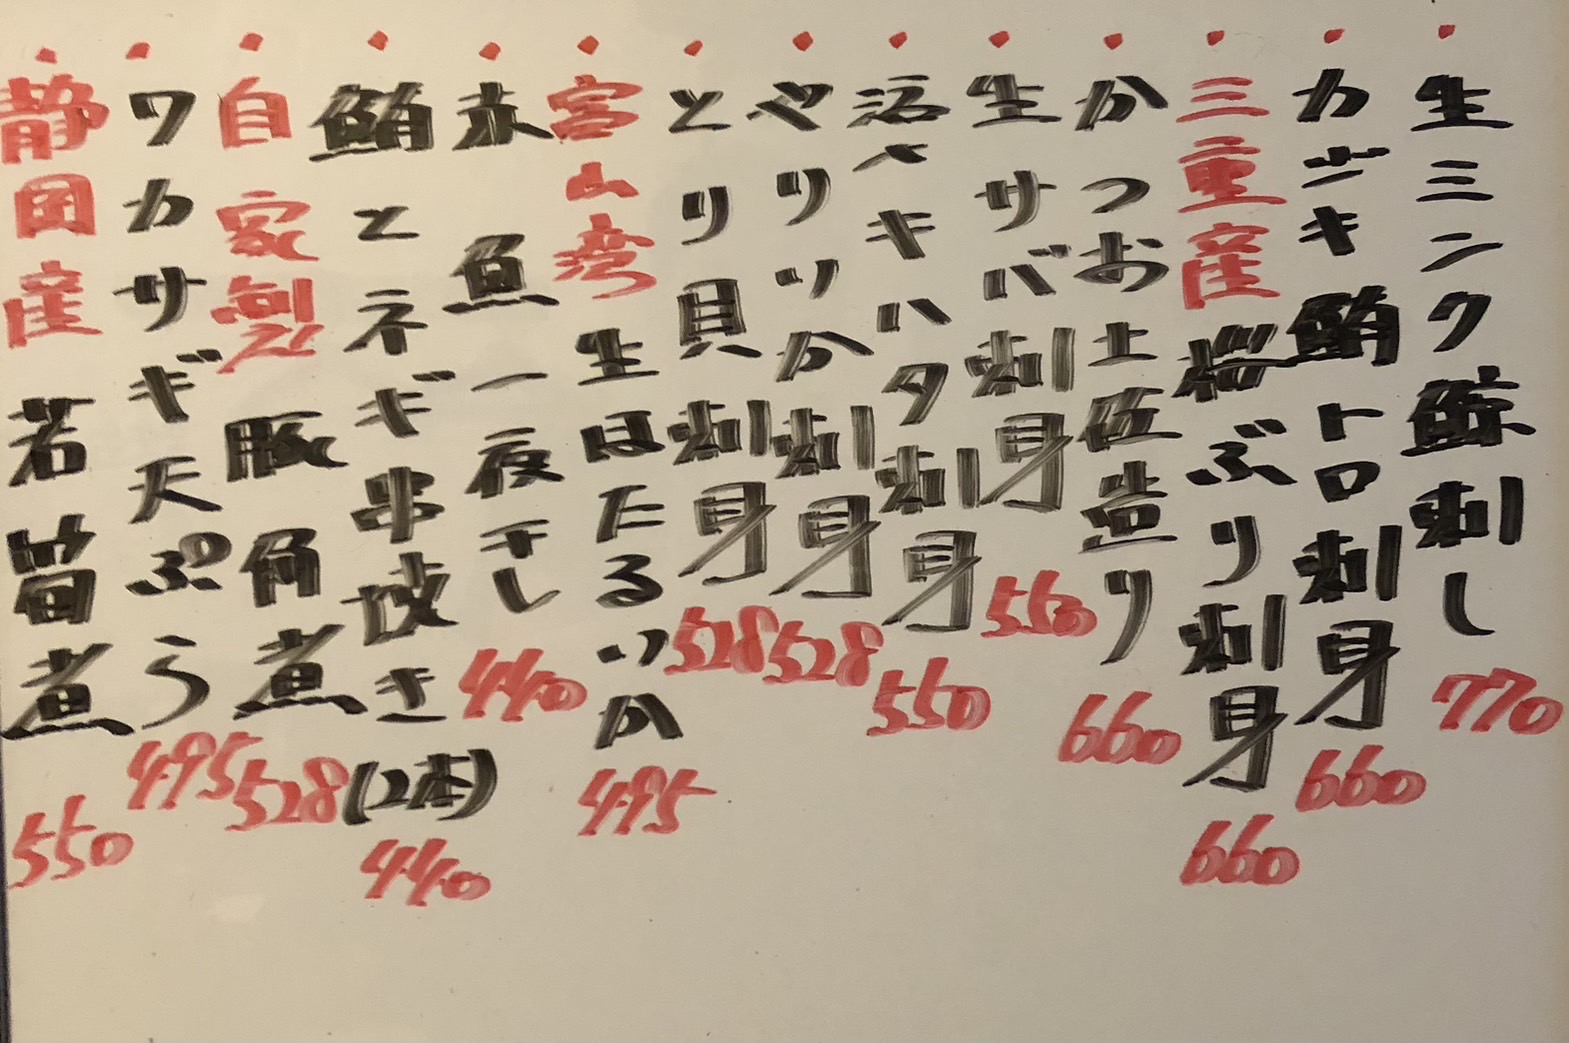 ・生ミンク鯨刺し 770
・カジキ鮪トロ刺身 660
・三重産 桜ぶり刺身 660
・かつお土佐造り 660
・生サバ刺身 550
・活〆キハタ刺身 550
・やりいか刺身 528
・とり貝刺身 528
・富山湾 生ほたるいか 495
・赤魚一夜干し 440
・鮪とネギ串焼き(2本) 440
・自家製 豚角煮 528
・ワカサギ天ぷら 495
・静岡産 若筍煮 550